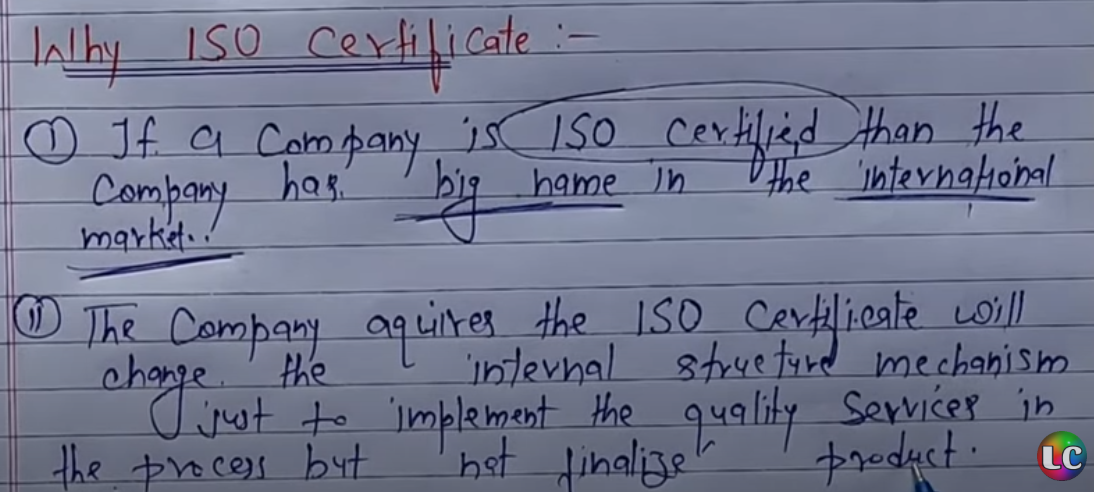 Why ISO Certificate :-
① If a Company is ISO Certified than the
Company has big name in the international
market..
ⅱ The Company aquires the ISO Certificate will
change the internal structure mechanism
just to implement the quality Services in
the process but not finalize product.
LC